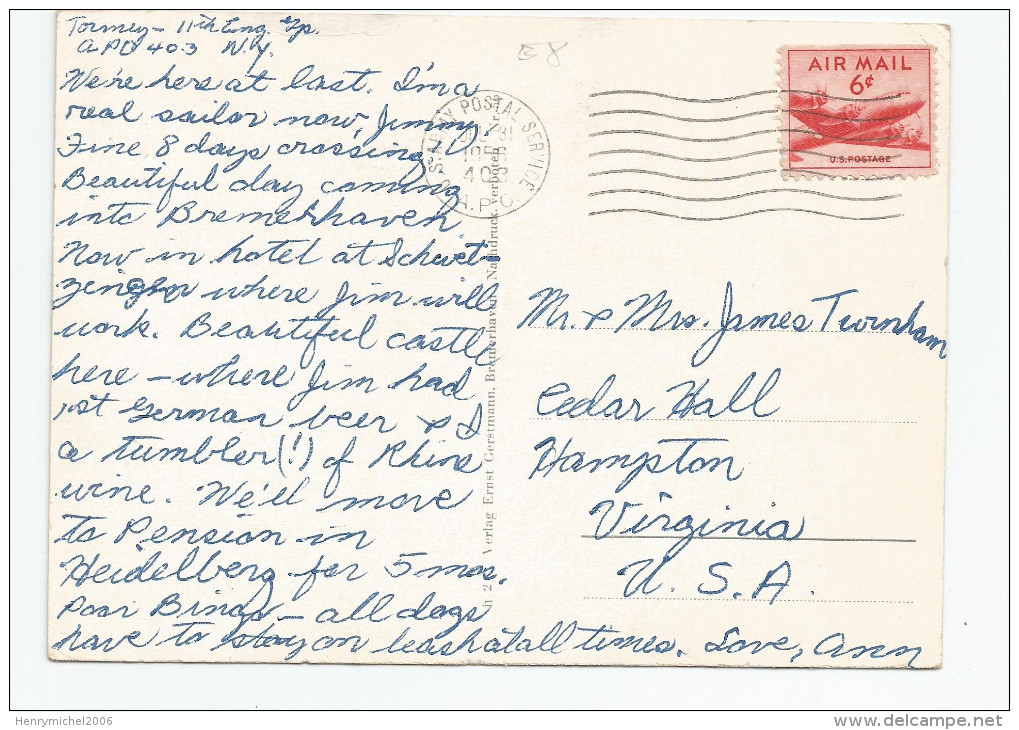 Tormey - 11th Eng. Gp.
APO 403 N.Y.
We're here at last. I'm a
real sailor now, Jimmy.
Fine 8 days crossing.
Beautiful day coming
into Bremerhaven.
Now in hotel at Schwet-
zingen where Jim will
work. Beautiful castle
here - where Jim had
1st German beer & I
a tumbler (!) of Rhine
wine. We'll move
to Pension in
Heidelberg for 5 mos.
Poor Bings - all dogs
have to stay on leash at all times. Love, Ann
E 8
ARMY POSTAL SERVICE
403
A.P.O.
AIR MAIL
6¢
U.S. POSTAGE
Verlag Ernst Gerstmann, Bremerhaven. Nachdruck verboten
Mr. & Mrs. James Turnham
Cedar Hall
Hampton
Virginia
U. S. A.
Henrymichel2006